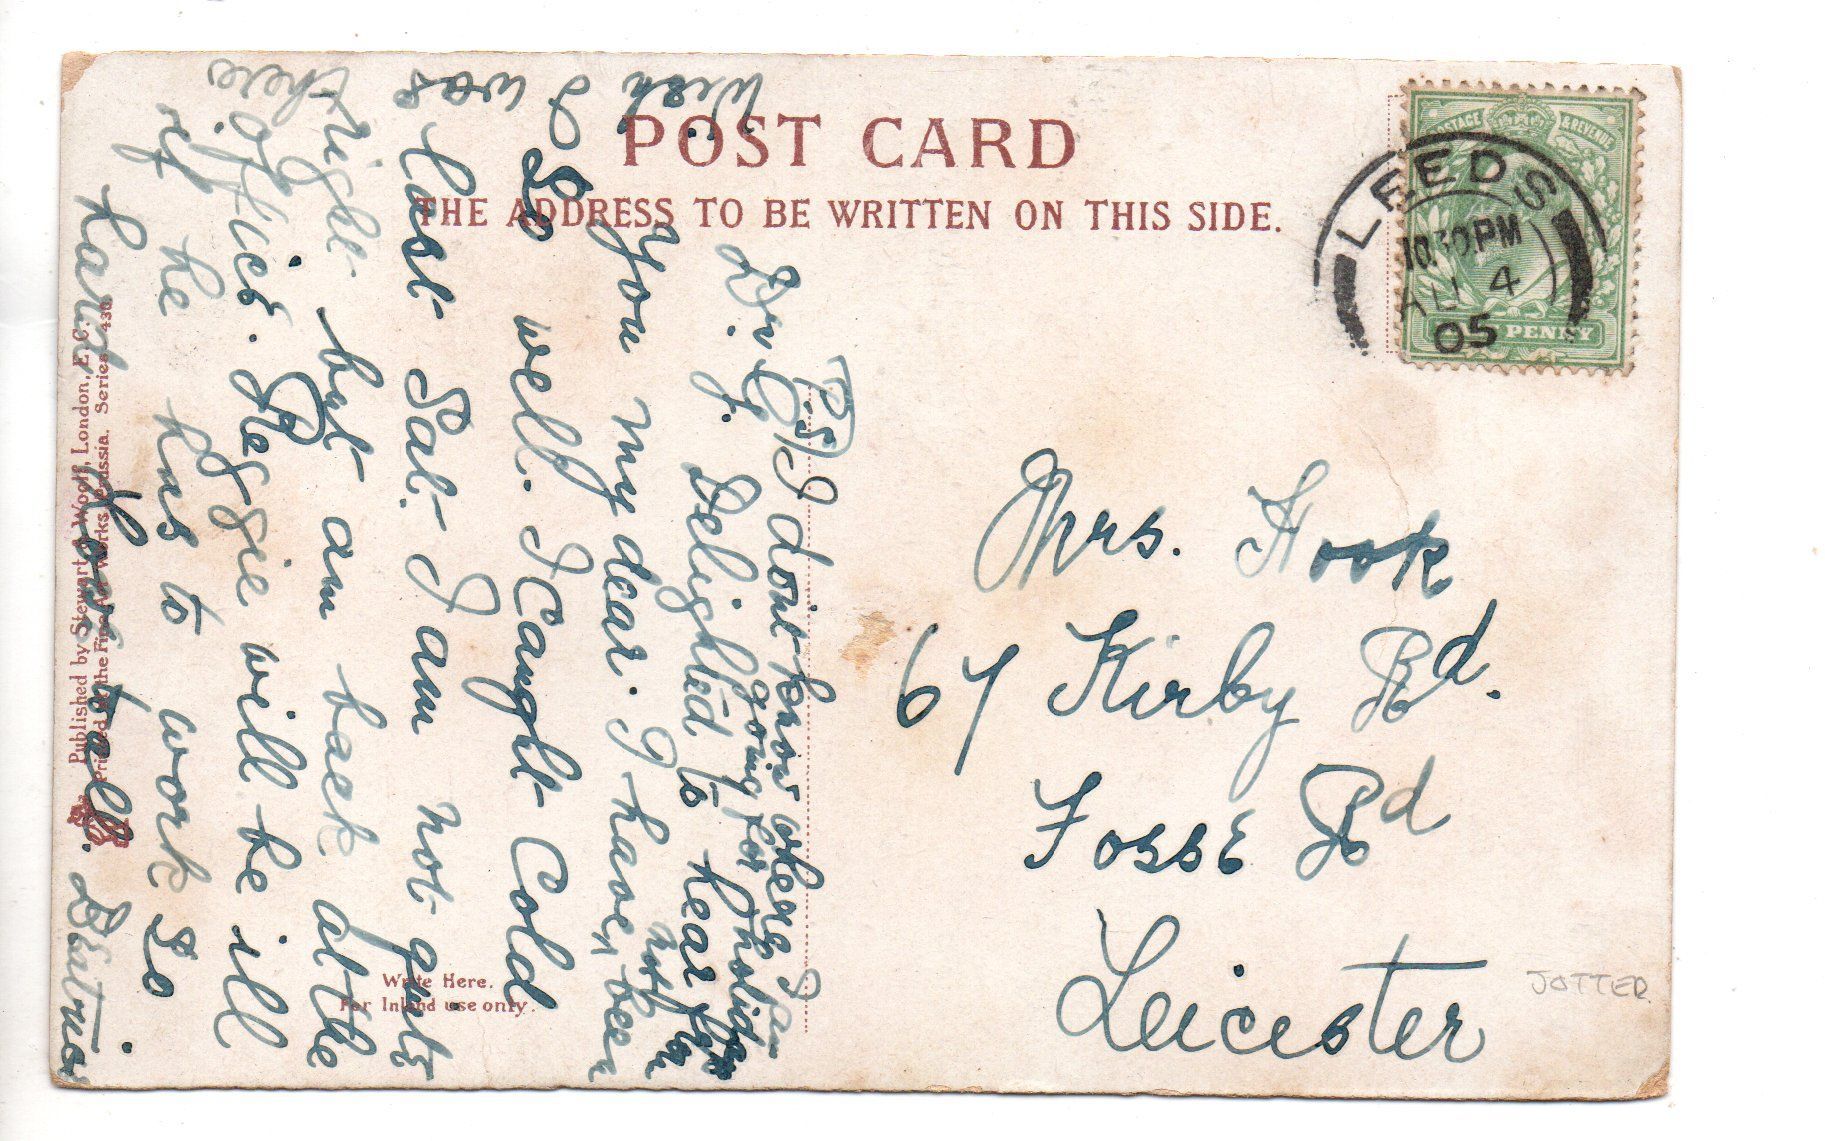 POST CARD
THE ADDRESS TO BE WRITTEN ON THIS SIDE.
LEEDS
10.30PM
AU 4
05
POSTAGE & REVENUE
PENNY
Mrs. Hook
67 Kirby Rd.
Fosse Rd
Leicester
JOTTER
(P.S) I don't know where I am
going for holidays
Dr. G. Delighted to hear from
you my dear. I have not been
So well. I Caught Cold
last Sat. I am not quite
right but am back at the
office. Reggie will be ill
if he has to work so
hard. Love to all. Beatrice
I was
there
Write Here.
For Inland use only.
Published by Stewart & Woolf, London, E.C.
Printed at the Fine Art Works, Prussia. Series 430